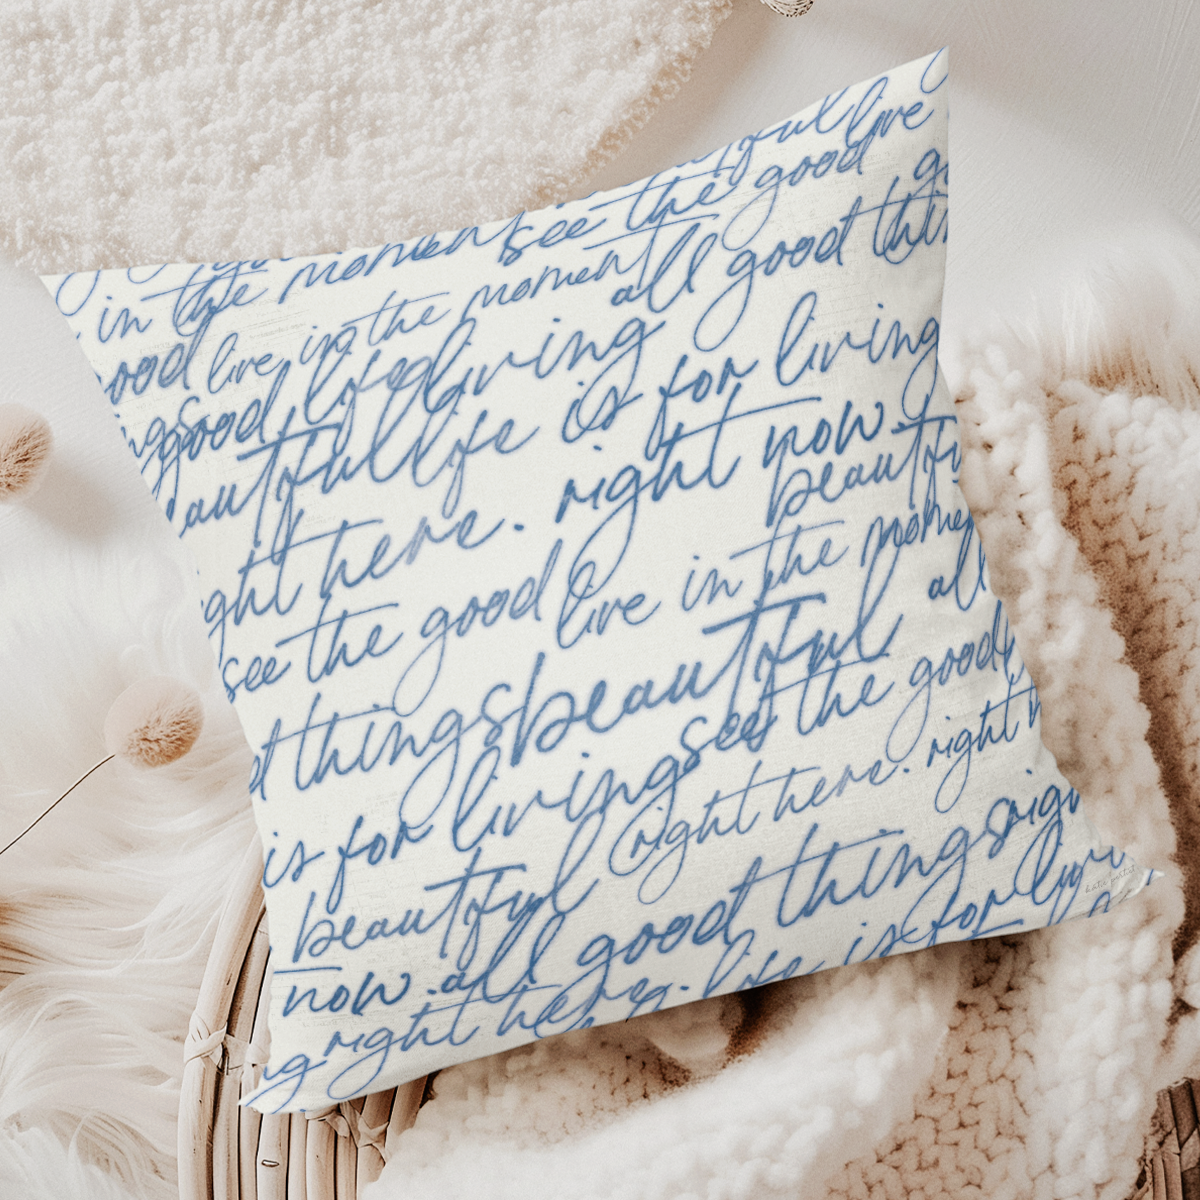 ful live
see the good
in the moment
all good thin
ood live in the moment
good life living
is for living
autiful life
right now.
ght here.
beautifu
see the good live in the momen
all
d things beautiful
see the good
is for living
right here. right n
beautiful
all good things righ
now.
right here. life is for livin
ng
katie